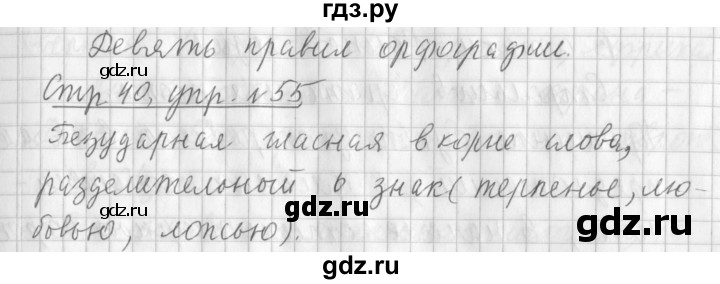 гдз.ру
Девять правил орфографии.
Стр 40, упр. №55
Безударная гласная в корне слова,
разделительный ь знак (терпенье, лю-
бовью, лопсью).
gdz.ru
gdz.ru
gdz.ru
gdz.ru
gdz.ru